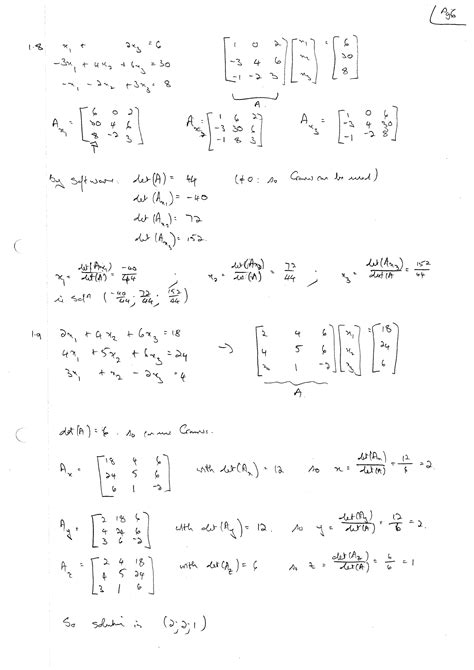 A96
1.8 x₁ + 2x₃ = 6
-3x₁ + 4x₂ + 6x₃ = 30
-x₁ - 2x₂ + 3x₃ = 8
[1 0 2; -3 4 6; -1 -2 3] [x₁; x₂; x₃] = [6; 30; 8]
A
A_x₁ = [6 0 2; 30 4 6; 8 -2 3] A_x₂ = [1 6 2; -3 30 6; -1 8 3] A_x₃ = [1 0 6; -3 4 30; -1 -2 8]
By software. det(A) = 44 (≠0: so Cramer can be used)
det(A_x₁) = -40
det(A_x₂) = 72
det(A_x₃) = 152
x₁ = det(A_x₁)/det(A) = -40/44 ; x₂ = det(A_x₂)/det(A) = 72/44 ; x₃ = det(A_x₃)/det(A) = 152/44
is sol'n (-40/44; 72/44; 152/44)
1.9 2x₁ + 4x₂ + 6x₃ = 18
4x₁ + 5x₂ + 6x₃ = 24
3x₁ + x₂ - 2x₃ = 4
→ [2 4 6; 4 5 6; 3 1 -2] [x₁; x₂; x₃] = [18; 24; 6]
A
det(A) = 6. so can use Cramer.
A_x = [18 4 6; 24 5 6; 6 1 -2] with det(A_x) = 12 so x = det(A_x)/det(A) = 12/6 = 2.
A_y = [2 18 6; 4 24 6; 3 6 -2] with det(A_y) = 12. so y = det(A_y)/det(A) = 12/6 = 2.
A_z = [2 4 18; 4 5 24; 3 1 6] with det(A_z) = 6 so z = det(A_z)/det(A) = 6/6 = 1
So solution is (2; 2; 1)